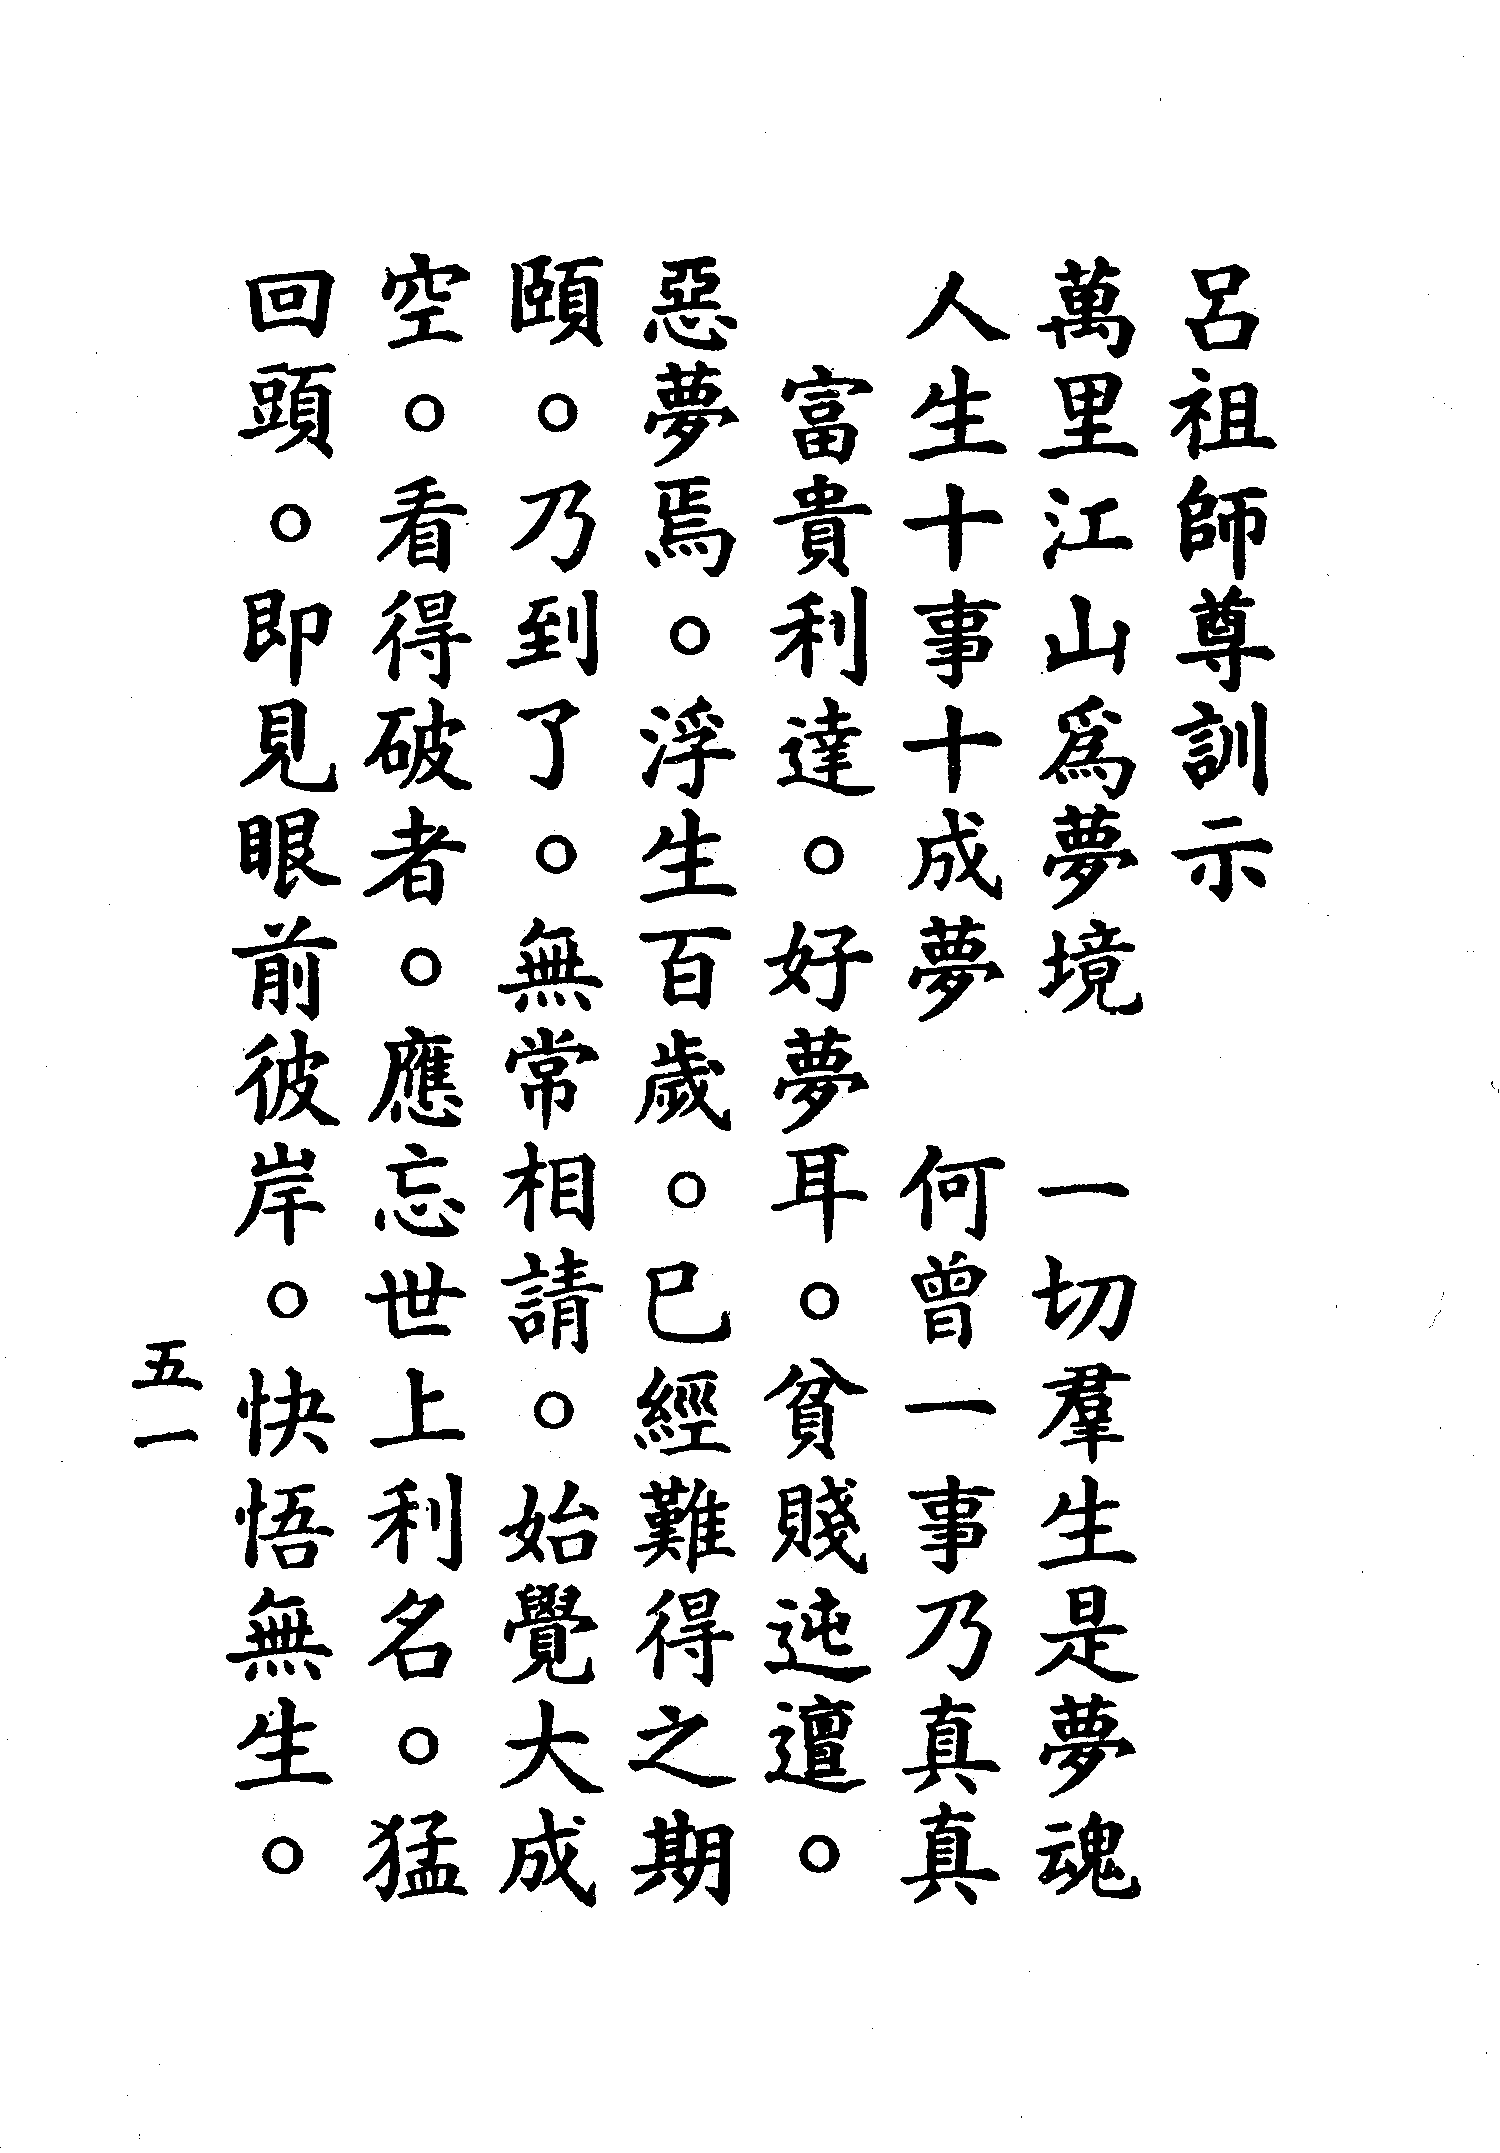 呂祖師尊訓示
萬里江山爲夢境　一切羣生是夢魂
人生十事十成夢　何曾一事乃真真
富貴利達。好夢耳。貧賤迍邅。
惡夢焉。浮生百歲。已經難得之期
頤。乃到了。無常相請。始覺大成
空。看得破者。應忘世上利名。猛
回頭。即見眼前彼岸。快悟無生。
五一